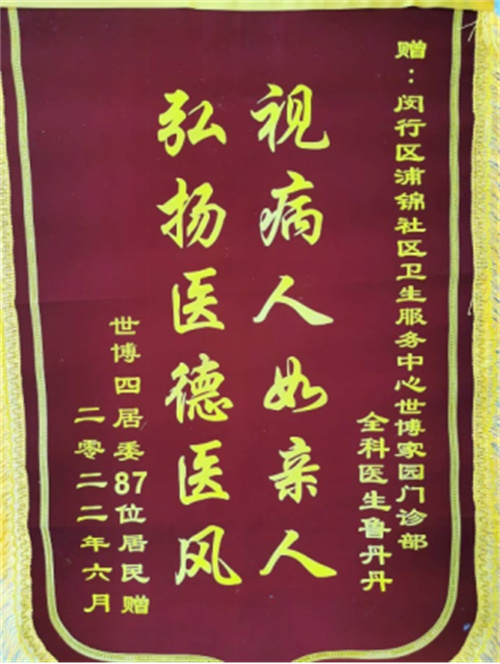 赠：闵行区浦锦社区卫生服务中心世博家园门诊部
全科医生鲁丹丹
视病人如亲人
弘扬医德医风
世博四居委87位居民赠
二零二二年六月